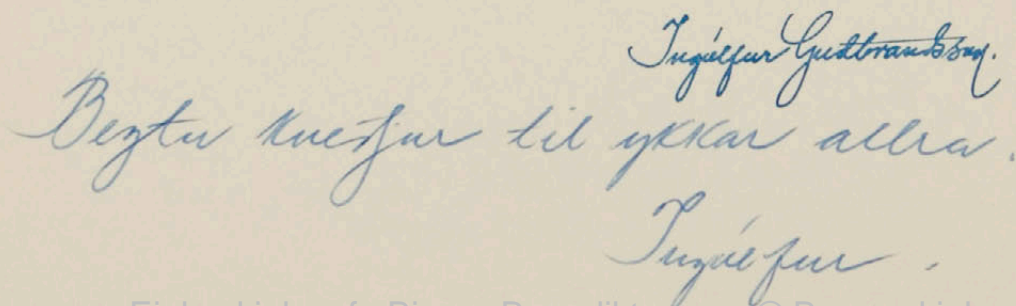 Ingólfur Guðbrandsson.
Beztu kveðjur til ykkar allra.
Ingólfur.